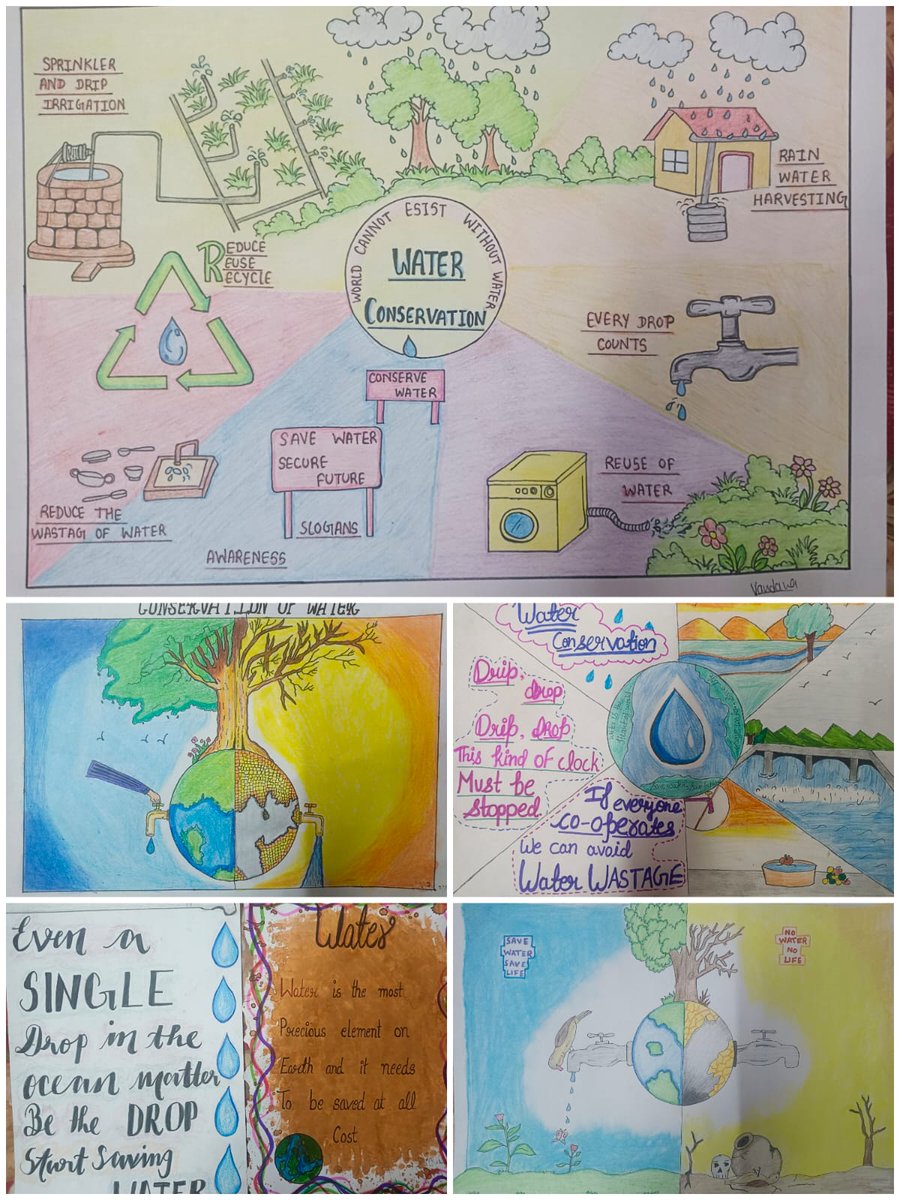 SPRINKLER
AND DRIP
IRRIGATION
RAIN
WATER
HARVESTING
REDUCE
REUSE
RECYCLE
WORLD CANNOT ESIST WITHOUT WATER
WATER
CONSERVATION
EVERY DROP
COUNTS
CONSERVE
WATER
SAVE WATER
SECURE
FUTURE
SLOGIANS
AWARENESS
REDUCE THE
WASTAG OF WATER
REUSE OF
WATER
Vandana
CONSERVATION OF WATER
Water
Conservation
Drip,
drop
Drip, drop
This kind of clock
Must be
stopped
If everyone
co-operates
We can avoid
Water WASTAGE
Even a
SINGLE
Drop in the
ocean matter
Be the DROP
Start Saving
WATER
Water
Water is the most
Precious element on
Earth and it needs
To be saved at all
Cost
SAVE
WATER
SAVE
LIFE
NO
WATER
NO
LIFE